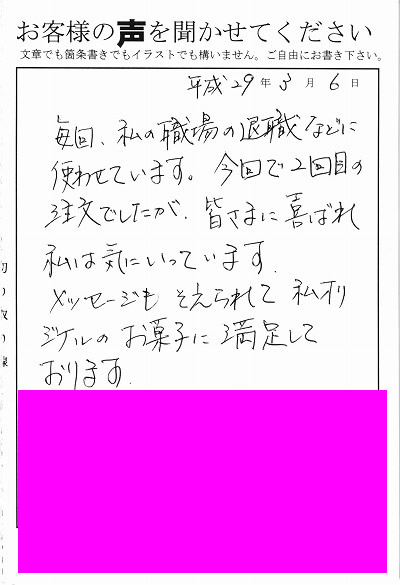 お客様の声を聞かせてください
文章でも箇条書きでもイラストでも構いません。ご自由にお書き下さい。
平成29年3月6日
毎回、私の職場の退職などに
使わせています。今回で2回目の
注文でしたが、皆さまに喜ばれ
私は気にいっています.
メッセージも そえられて 私オリ
ジナルの お菓子に 満足して
おります.
切り取り線